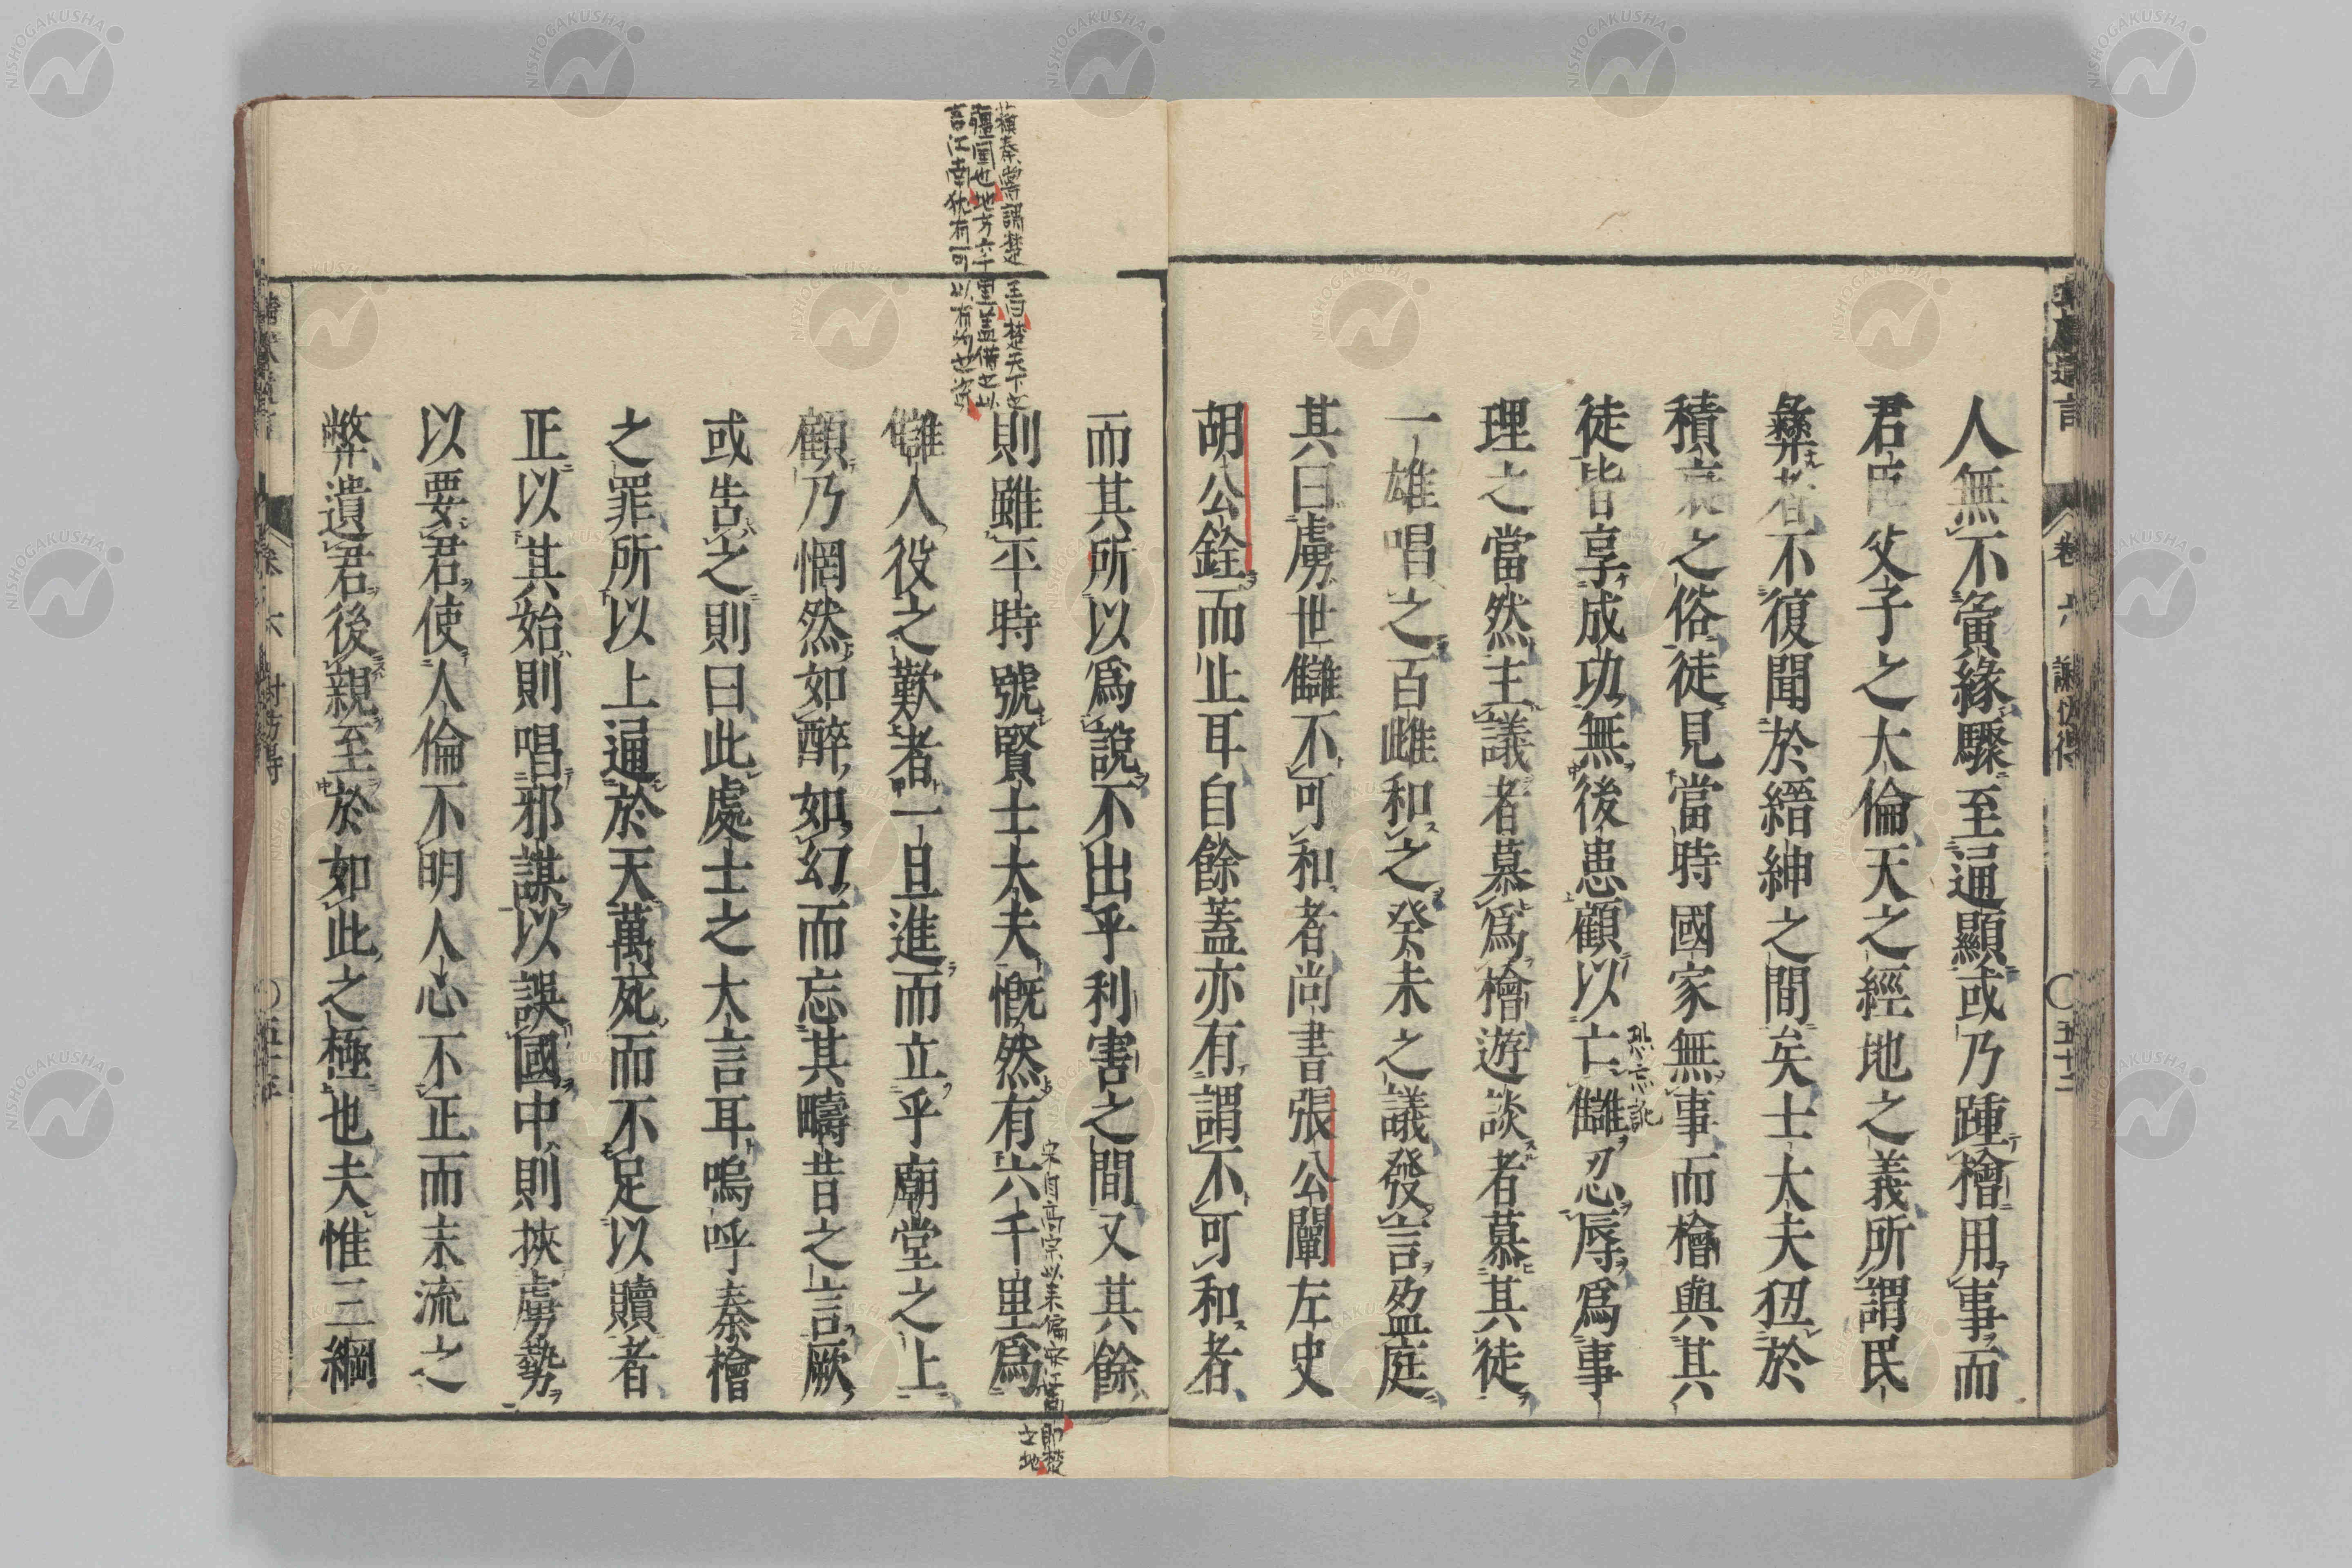 人無不夤緣驟至通顯或乃踵檜用事而
君臣父子之大倫天之經地之義所謂民
彝者不復聞於縉紳之間矣士大夫狃於
積衰之俗徒見當時國家無事而檜與其
徒皆享成功無後患顧以亡讎忍辱爲事
恐忘訛
理之當然主議者慕爲檜遊談者慕其徒
一雄唱之百雌和之癸未之議發言盈庭
其曰虜世讎不可和者尚書張公闡左史
胡公銓而止耳自餘蓋亦有謂不可和者
卷六
謝枋得
五十三
蘇秦嘗謂楚
彊國也地方六千里蓋借之以
言江南猶有可以有爲之資
而其所以爲說不出乎利害之間又其餘
則雖平時號賢士大夫慨然有六千里爲
宋自高宗以來偏安江南即楚
之地
讎人役之歎者一旦進而立乎廟堂之上
顧乃惘然如醉如幻而忘其疇昔之言厥
或告之則曰此處士之大言耳嗚呼秦檜
之罪所以上通於天萬死而不足以贖者
正以其始則唱邪謀以誤國中則挾虜勢
以要君使人倫不明人心不正而末流之
弊遺君後親至於如此之極也夫惟三綱
NISHOGAKUSHA